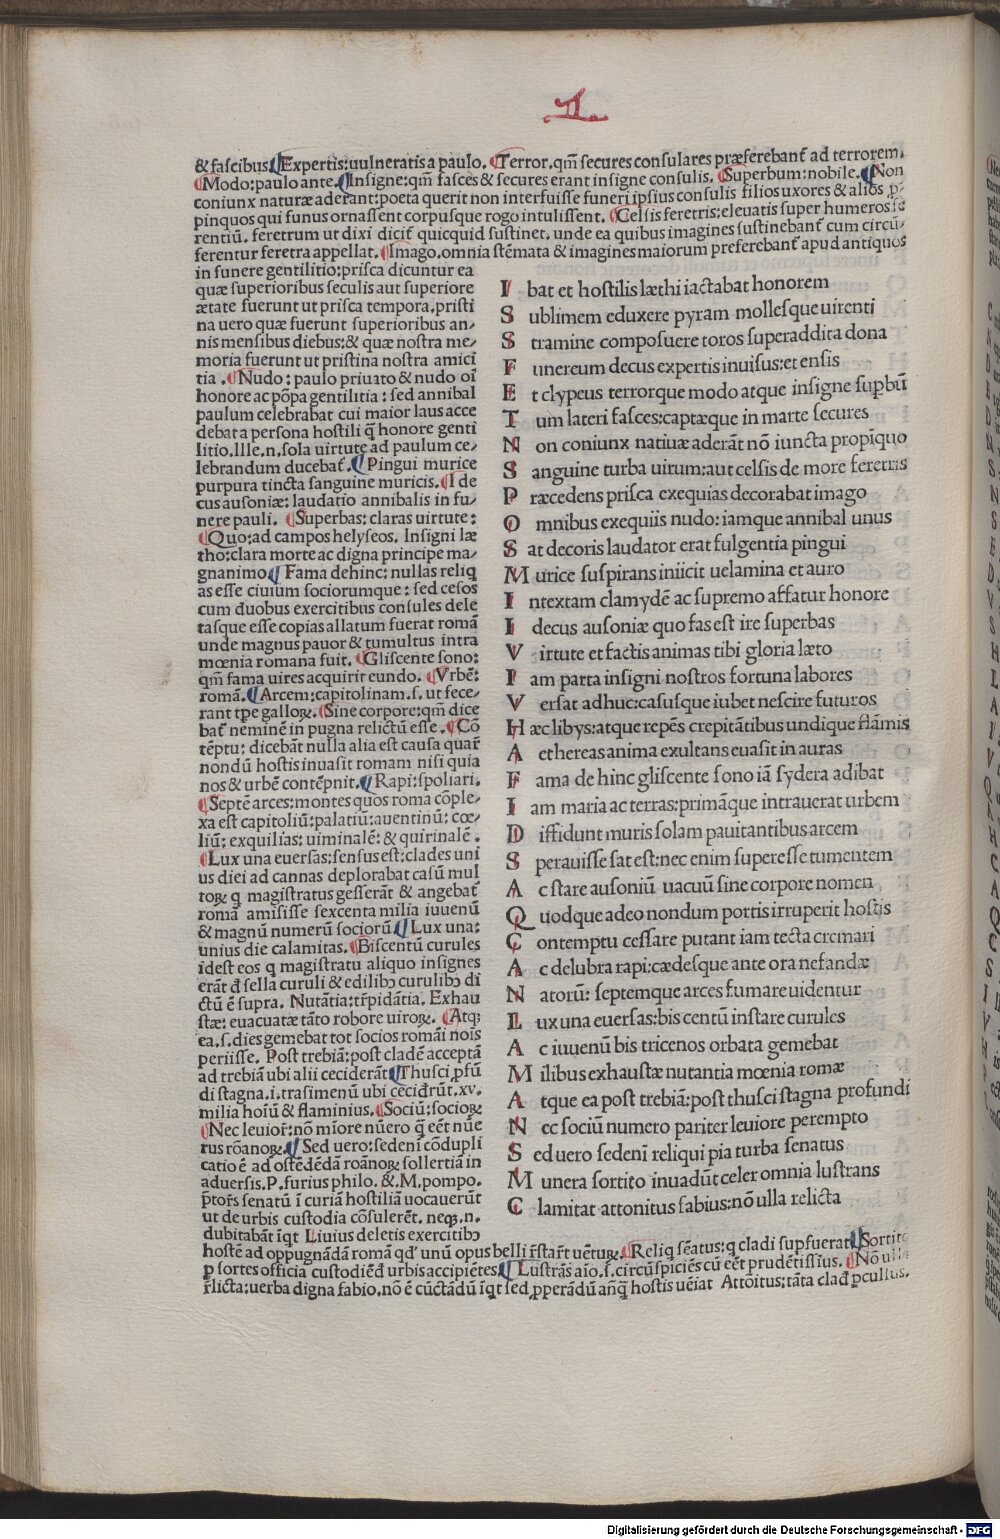 II.
& fascibus. Expertis: uulneratis a paulo. Terror. qm̃ secures consulares præferebant̃ ad terrorem.
Modo: paulo ante. Insigne: qm̃ fasces & secures erant insigne consulis. Superbum: nobile. Non
coniunx naturæ aderant: poeta querit non interfuisse funeri ipsius consulis filios uxores & alios ꝓ-
pinquos qui funus ornassent corpusque rogo intulissent. Celsis feretris: eleuatis super humeros fe
rentiū. feretrum ut dixi dicit̃ quicquid sustinet, unde ea quibus imagines sustinebant̃ cum circũ-
ferentur feretra appellat. Imago. omnia stẽmata & imagines maiorum preferebant̃ apud antiquos
in funere gentilitio: prisca dicuntur ea
quæ superioribus seculis aut superiore
ætate fuerunt ut prisca tempora. pristi
na uero quæ fuerunt superioribus an-
nis mensibus diebus: & quæ nostra me-
moria fuerunt ut pristina nostra amici
tia. Nudo: paulo priuato & nudo oĩ
honore ac põpa gentilitia: sed annibal
paulum celebrabat cui maior laus acce
debat a persona hostili q̃ honore genti
litio. Ille. n. sola uirtute ad paulum ce-
lebrandum ducebat̃. Pingui murice
purpura tincta sanguine muricis. I de
cus ausoniæ: laudatio annibalis in fu-
nere pauli. Superbas: claras uirtute:
Quo: ad campos helyseos. Insigni læ
tho: clara morte ac digna principe ma-
gnanimo. Fama dehinc: nullas reliq
as esse ciuium sociorumque: sed cesos
cum duobus exercitibus consules dele
tasque esse copias allatum fuerat romã
unde magnus pauor & tumultus intra
mœnia romana fuit. Gliscente sono:
qm̃ fama uires acquirit eundo. Vrbẽ:
romã. Arcem: capitolinam. s. ut fece-
rant tp̃e galloꝝ. Sine corpore: qm̃ dice
bat̃ neminẽ in pugna relictũ esse. Cõ
tẽptu: dicebãt nulla alia est causa quar̃
nondũ hostis inuasit romam nisi quia
nos & urbẽ contẽpnit. Rapi: spoliari.
Septẽ arces: montes quos roma cõple-
xa est capitoliũ: palatiũ: auentinũ: cœ-
liũ: exquilias: uiminalẽ: & quirinalẽ.
Lux una euersas: sensus est: clades uni
us diei ad cannas deplorabat casũ mul
toꝝ q magistratus gesserãt & angebat̃
romã amisisse sexcenta milia iuuenũ
& magnũ numerũ socioꝝ. Lux una:
unius die calamitas. Biscentũ curules
idest eos q magistratu aliquo insignes
erãt đ sella curuli & edilibꝫ curulibꝫ di
ctũ ẽ supra. Nutãtia: tr̃pidãtia. Exhau
stæ: euacuatæ tãto robore uiroꝝ. Atqꝫ
ea. s. dies gemebat tot socios romãi nois
periisse. Post trebiã: post cladẽ acceptã
ad trebiã ubi alii ceciderãt Thusci ꝓfũ
di stagna. i. trasimenũ ubi ceciđrũt. xv.
milia hoiũ & flaminius. Sociũ: socioꝝ
Nec leuior̃: nõ miore nũero q̃ eẽt nũe
rus rõanoꝝ. Sed uero: sedeni cõdupli
catio ẽ ad ostẽdẽdã roãnoꝝ sollertiã in
aduersis. P. furius philo. &. M. pompo.
p̃tor̃s senatũ ĩ curiã hostiliã uocauerũt
ut de urbis custodia cõsulerẽt. neqꝫ. n.
dubitabãt ĩqt Liuius deletis exercitibꝫ
hostẽ ad oppugnãdã romã qđ unũ opus belli r̃star̃t uẽturũ. Reliq sẽatus: q cladi supfuerat Sortito
p̱ sortes officia custodiẽđ urbis accipiẽtes. Lustrãs aĩo. s. circũspiciẽs cũ eẽt prudẽtissius. Nõ ulla
r̃licta: uerba digna fabio. nõ ẽ cũctãdũ ĩqt sed ꝓperãdũ añq̃ hostis uẽiat Attõitus: tãta clađ p̱cullus.
I bat et hostilis læthi iactabat honorem
S ublimem eduxere pyram mollesque uirenti
S tramine composuere toros superaddita dona
F unereum decus expertis inuisus: et ensis
E t clypeus terrorque modo atque insigne supbũ
T um lateri fasces: captæque in marte secures
N on coniunx natiuæ aderãt nõ iuncta propĩquo
S anguine turba uirum: aut celsis de more feretris
P ræcedens prisca exequias decorabat imago
O mnibus exequiis nudo: iamque annibal unus
S at decoris laudator erat fulgentia pingui
M urice suspirans iniicit uelamina et auro
I ntextam clamydẽ ac supremo affatur honore
I decus ausoniæ quo fas est ire superbas
V irtute et factis animas tibi gloria læto
I am parta insigni nostros fortuna labores
V ersat adhuc: casusque iubet nescire futuros
H æc libys: atque repẽs crepitãtibus undique flãmis
A ethereas anima exultans euasit in auras
F ama de hinc gliscente sono iã sydera adibat
I am maria ac terras: primãque intrauerat urbem
D iffidunt muris solam pauitantibus arcem
S perauisse sat est: nec enim superesse tumentem
A c stare ausoniũ uacuũ sine corpore nomen
Q uodque adeo nondum portis irruperit hostis
C ontemptu cessare putant iam tecta cremari
A c delubra rapi: cædesque ante ora nefandæ
N atorũ: septemque arces fumare uidentur
L ux una euersas: bis centũ instare curules
A c iuuenũ bis tricenos orbata gemebat
M ilibus exhaustæ nutantia mœnia romæ
A tque ea post trebiã: post thusci stagna profundi
N ec sociũ numero pariter leuiore perempto
S ed uero sedeni reliqui pia turba senatus
M unera sortito inuadũt celer omnia lustrans
C lamitat attonitus fabius: nõ ulla relicta
Digitalisierung gefördert durch die Deutsche Forschungsgemeinschaft - DFG